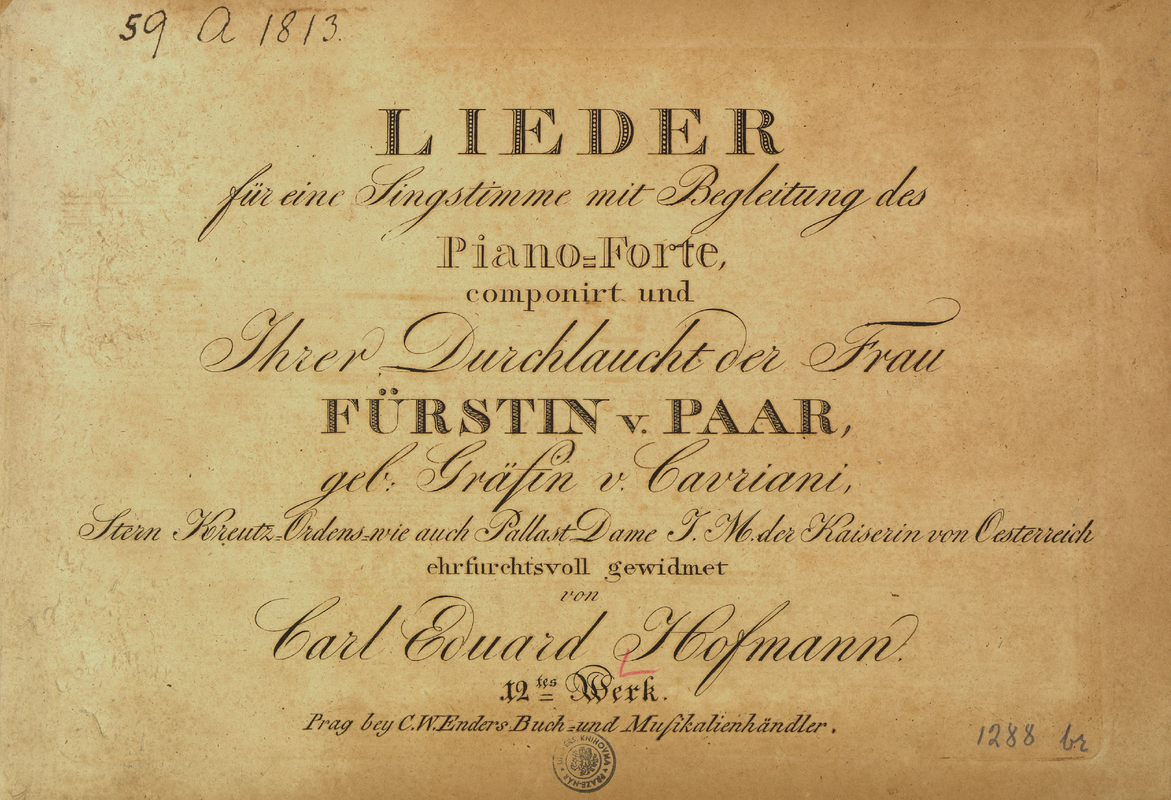 59 A 1813.
LIEDER
für eine Singstimme mit Begleitung des
Piano=Forte,
componirt und
Ihrer Durchlaucht der Frau
FÜRSTIN v. PAAR,
geb: Gräfin v. Cavriani,
Stern Kreutz=Ordens=wie auch Pallast=Dame I. M. der Kaiserin von Oesterreich
ehrfurchtsvoll gewidmet
von
Carl Eduard Hofmann.
12tes Werk.
Prag bey C.W.Enders Buch=und Musikalienhändler.
1288 br